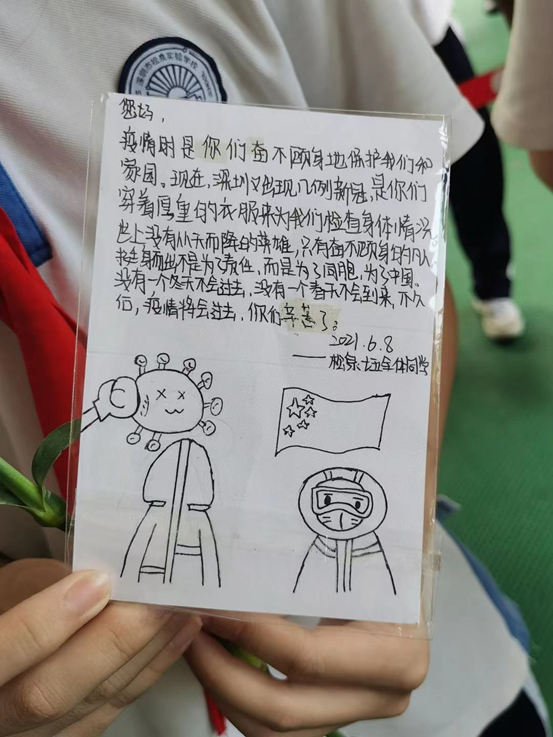 深圳市松泉实验学校
您好，
疫情时是你们奋不顾身地保护我们和
家园。现在，深圳又出现几例新冠，是你们
穿着厚重的衣服来为我们检查身体情况
世上没有从天而降的英雄，只有奋不顾身的凡人
挺身而出不是为了责任，而是为了同胞，为了中国。
没有一个冬天不会过去，没有一个春天不会到来，不久
后，疫情将会过去，你们辛苦了。
2021.6.8
——松泉七五全体同学